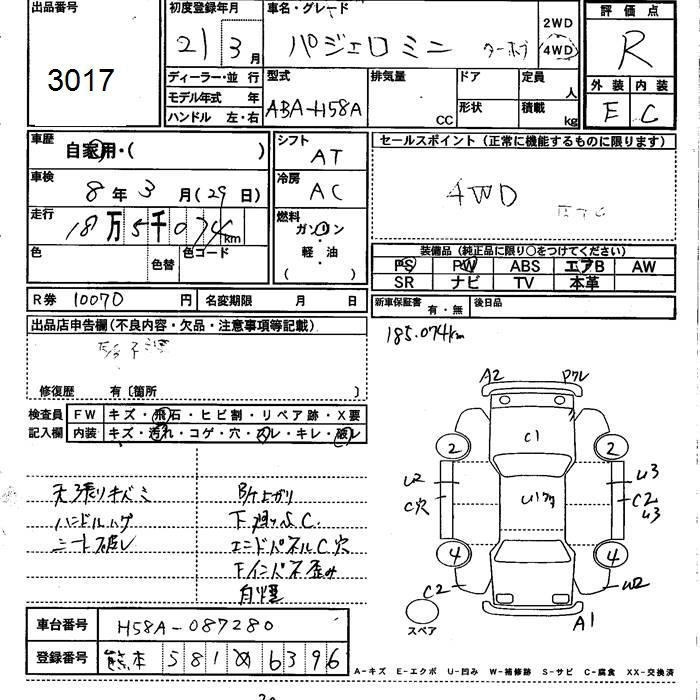 出品番号
3017
初度登録年月
21 3月
車名・グレード
パジェロミニ ターボ
2WD
4WD
評価点
R
外装 内装
E C
ディーラー・並行
モデル年式 年
ハンドル 左・右
型式
ABA-H58A
排気量
cc
ドア
形状
定員
人
積載
kg
車歴
自家用・( )
車検
8年3月(29日)
走行
18万5千074km
色
色替
色コード
シフト
AT
冷房
AC
燃料
ガソリン
軽・油
( )
セールスポイント (正常に機能するものに限ります)
4WD
装備品 (純正品に限り○をつけてください)
PS PW ABS エアB AW
SR ナビ TV 本革
R券 10070 円
名変期限 月 日
新車保証書
有・無
後日品
185.074km
出品店申告欄(不良内容・欠品・注意事項等記載)
修復歴 有〔箇所 〕
検査員 FW キズ・飛石・ヒビ割・リペア跡・X要
記入欄 内装 キズ・汚れ・コゲ・穴・スレ・キレ・破レ
天張りキズミ
ハンドルハゲ
シート破レ
下廻りS C.
エンドパネルC穴
A2
C1
2
2
U2
C穴
U3
C2
U3
4
4
C2
W2
A1
スペア
車台番号 H58A-087280
登録番号 熊本 581 6396
A-キズ E-エクボ U-凹み W-補修跡 S-サビ C-腐食 XX-交換済